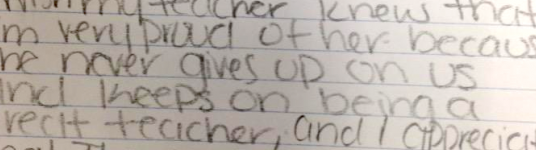 my teacher knows that
m very proud of her becaus
he never gives up on us
nd keeps on being a
reat teacher, and I appreciat